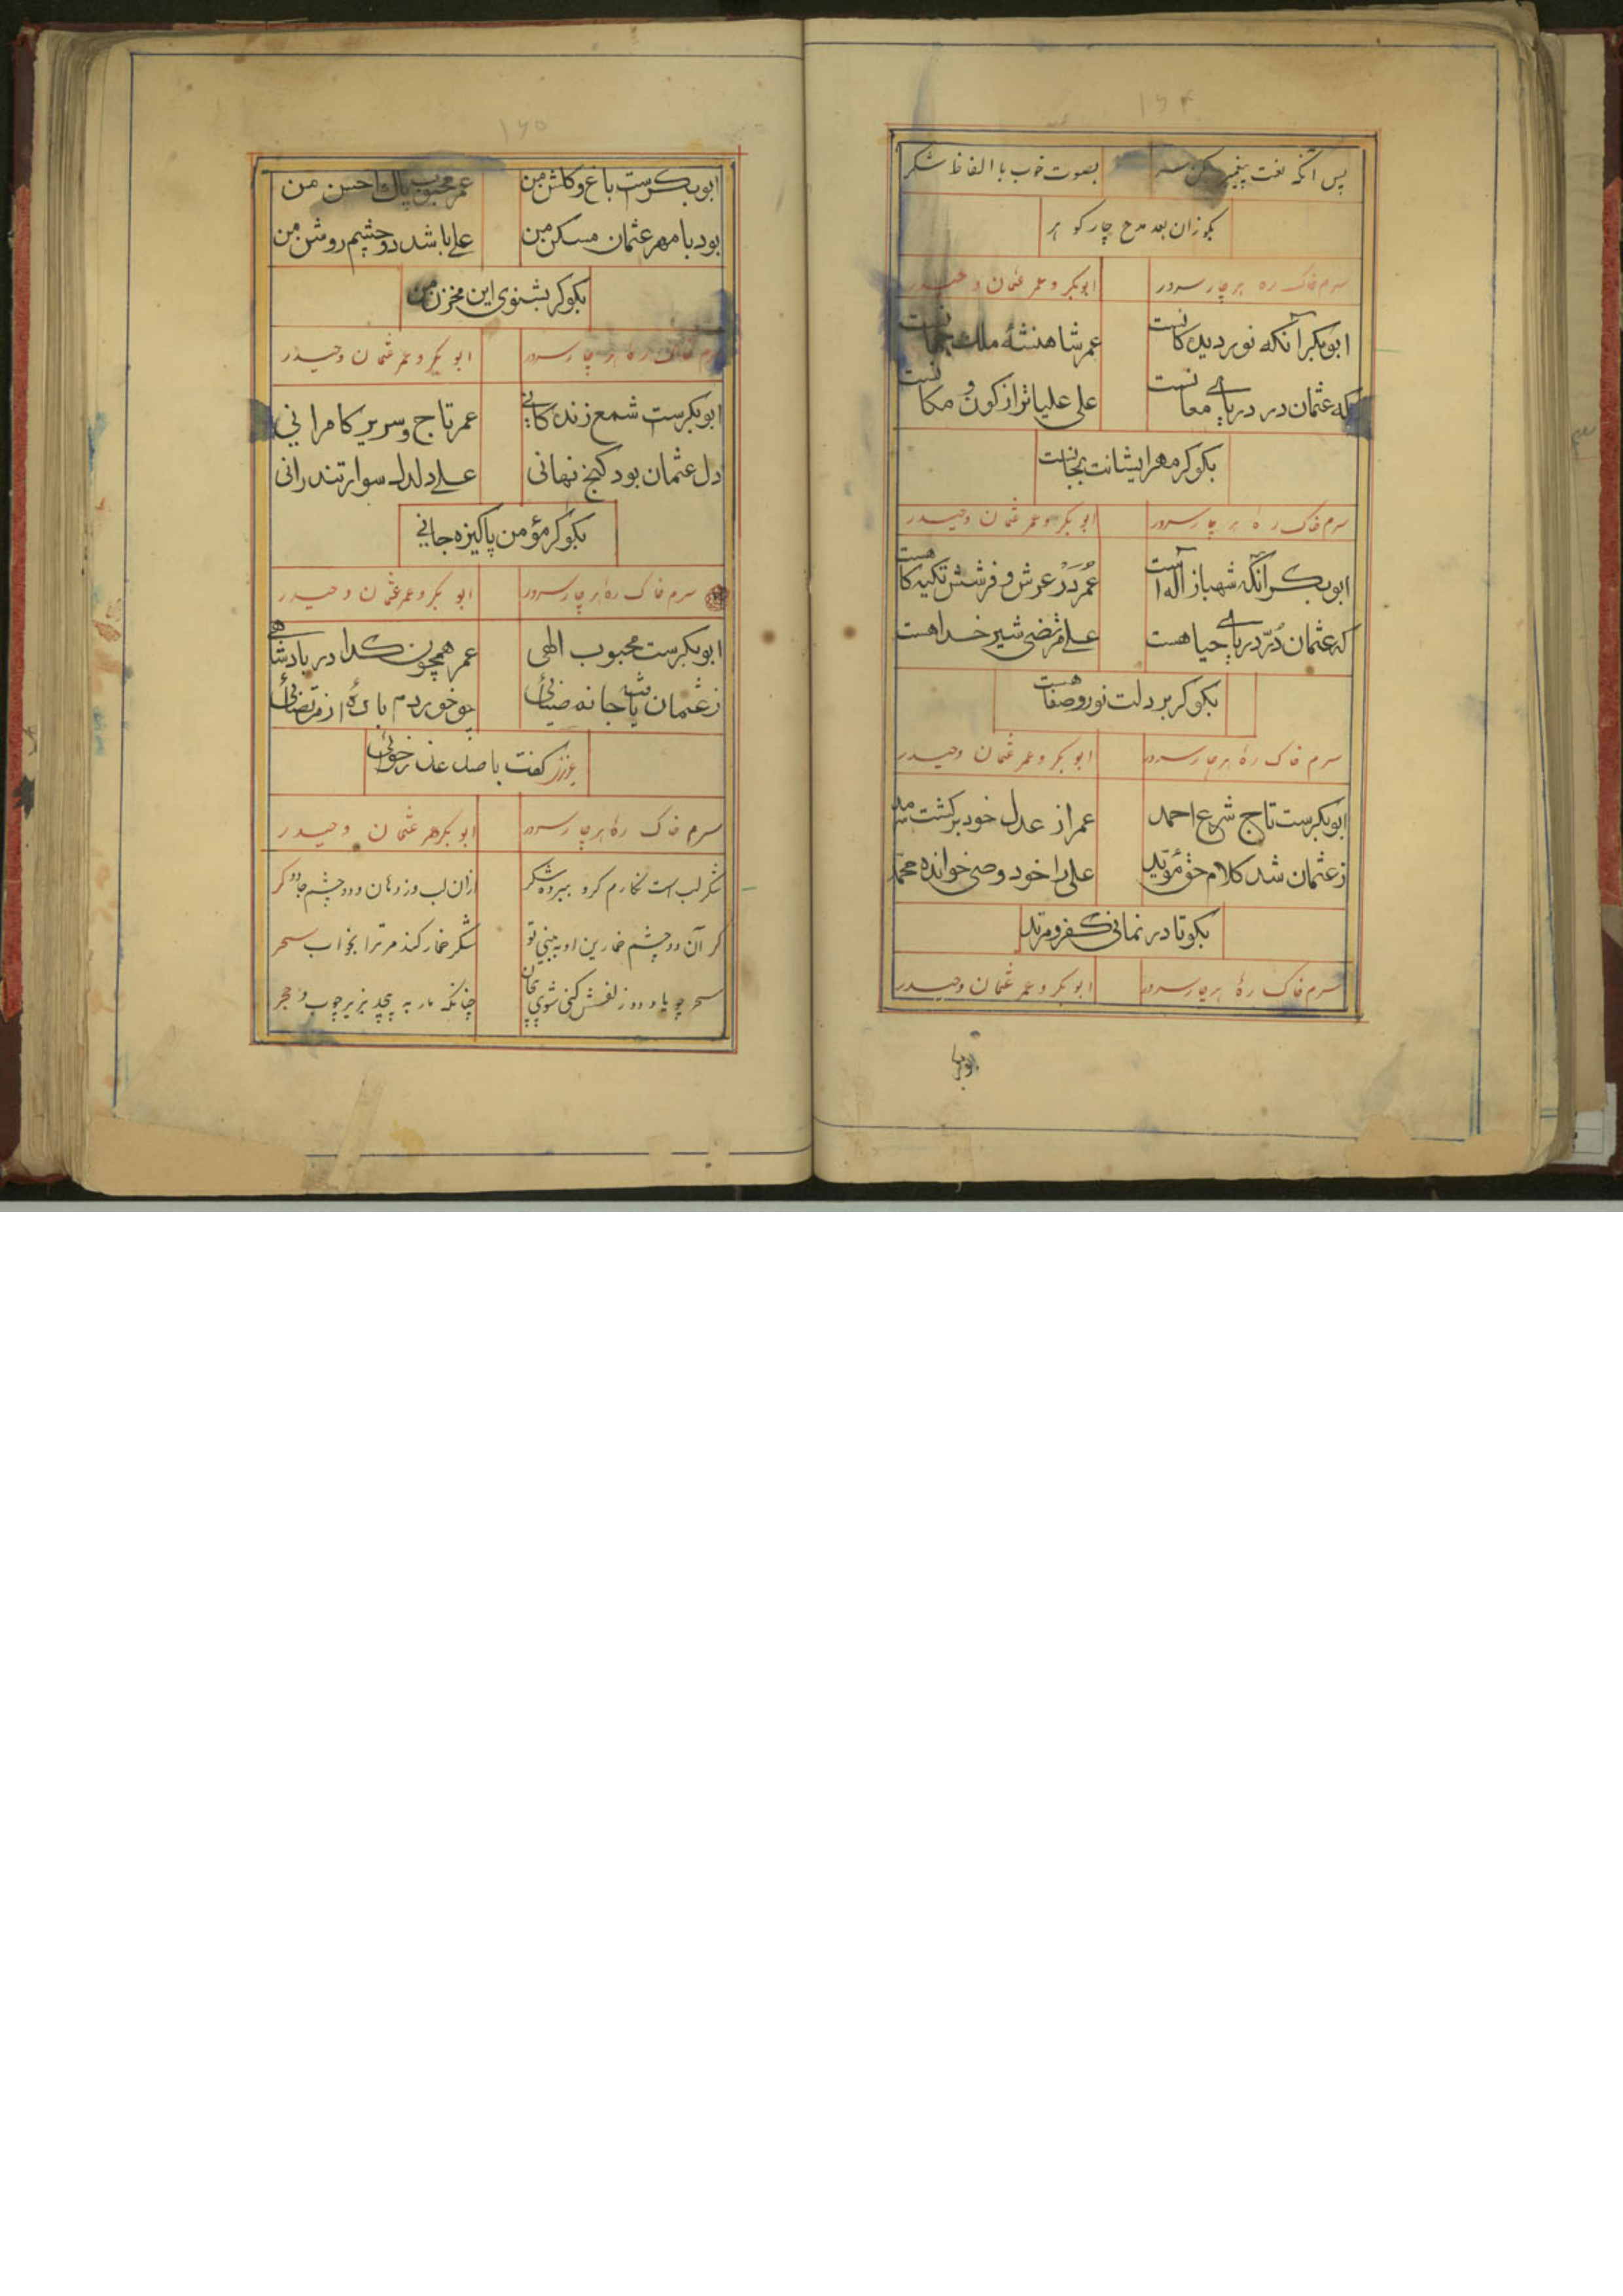 ۱۶۴
پس آنکه نعت پیغمبر بکن سر بصوت خوب با الفاظ شکر
بکو زان بعد مدح چار کوهر
سرم خاک ره هر چار سرور ابوبکر و عمر عثمان و حیدر
ابوبکر آنکه نور دیدکانست عمر شاهنشه ملک جهانست
که عثمان در دریای معانست علی علیاتر از کون و مکانست
بکو کر مهر ایشانت بجانست
سرم خاک ره هر چار سرور ابوبکر و عمر عثمان و حیدر
ابوبکر آنکه شهباز آله است عمر در عرش و فرشش تکیه کاهست
که عثمان در دریای حیا هست علی مرتضی شیر خدا هست
بکو کر بر دلت نور و صفا هست
سرم خاک ره هر چار سرور ابوبکر و عمر عثمان و حیدر
ابوبکرست تاج شرع احمد عمر از عدل خود برکشت
ز عثمان شد کلام حق مؤید علی را خود وصی خوانده محمد
بکو تا در نمانی کفر و مرتد
سرم خاک ره هر چار سرور ابوبکر و عمر عثمان و حیدر
۱۶۵
ابوبکرست باغ و کلشن من عمر محبوب پاک احسن من
بود با مهر عثمان مسکن من علی باشد دو چشم روشن من
بکو کر بشنوی این مخزن من
سرم خاک ره هر چار سرور ابوبکر و عمر عثمان و حیدر
ابوبکرست شمع زندکانی عمر تاج و سریر کامرانی
دل عثمان بود کنج نهانی علی دلدل سوار تند رانی
بکو کر مؤمن پاکیزه جانی
سرم خاک ره هر چار سرور ابوبکر و عمر عثمان و حیدر
ابوبکرست محبوب الهی عمر همچون کدا در بادشاهی
ز عثمان جانه ضیائی چو خوردم باده از مرتضائی
عزیز کفت با صد عذر خوائی
سرم خاک ره هر چار سرور ابوبکر عمر عثمان و حیدر
شکر لب است نکارم کرو ببرده شکر ازان لب وز دهان و دو چشم جادو کر
کر آن دو چشم خمارین او به بینی تو شکر خمار کند مر ترا بخواب سحر
سحر چو یاد دو زلفش کنی شوی پیچان چنانکه مار به پیچد بزیر چوب و حجر